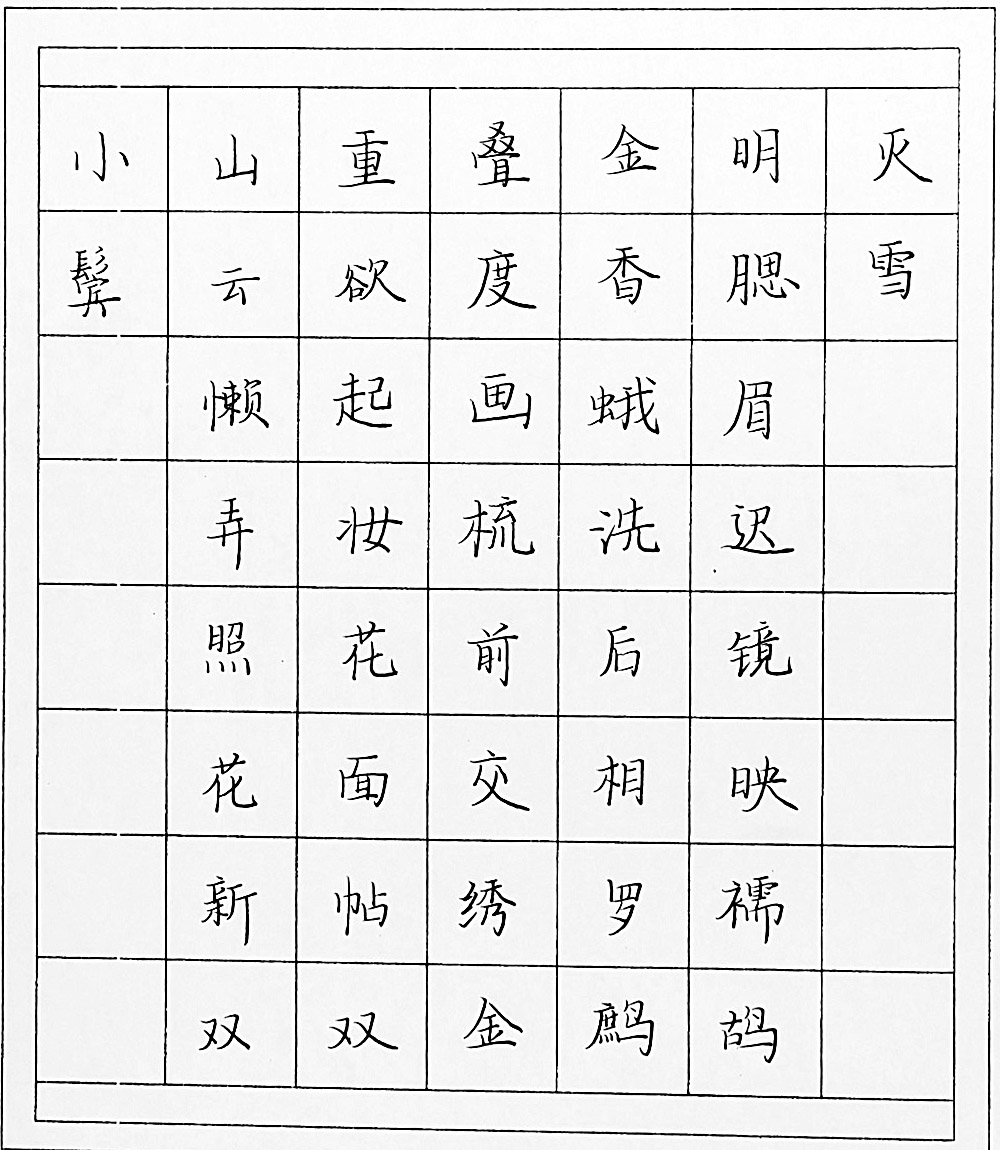 小山重叠金明灭
鬓云欲度香腮雪
懒起画蛾眉
弄妆梳洗迟
照花前后镜
花面交相映
新帖绣罗襦
双双金鹧鸪